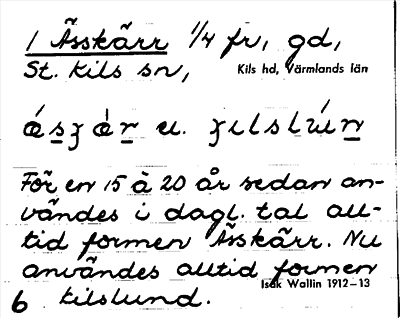 1 Åsskärr 1/4 fr, gd,
St. Kils sn,
Kils hd, Värmlands län
u.
För en 15 à 20 år sedan an-
vändes i dagl. tal all-
tid formen Åsskärr. Nu
användes alltid formen
Isak Wallin 1912–13
6 Kilslund.